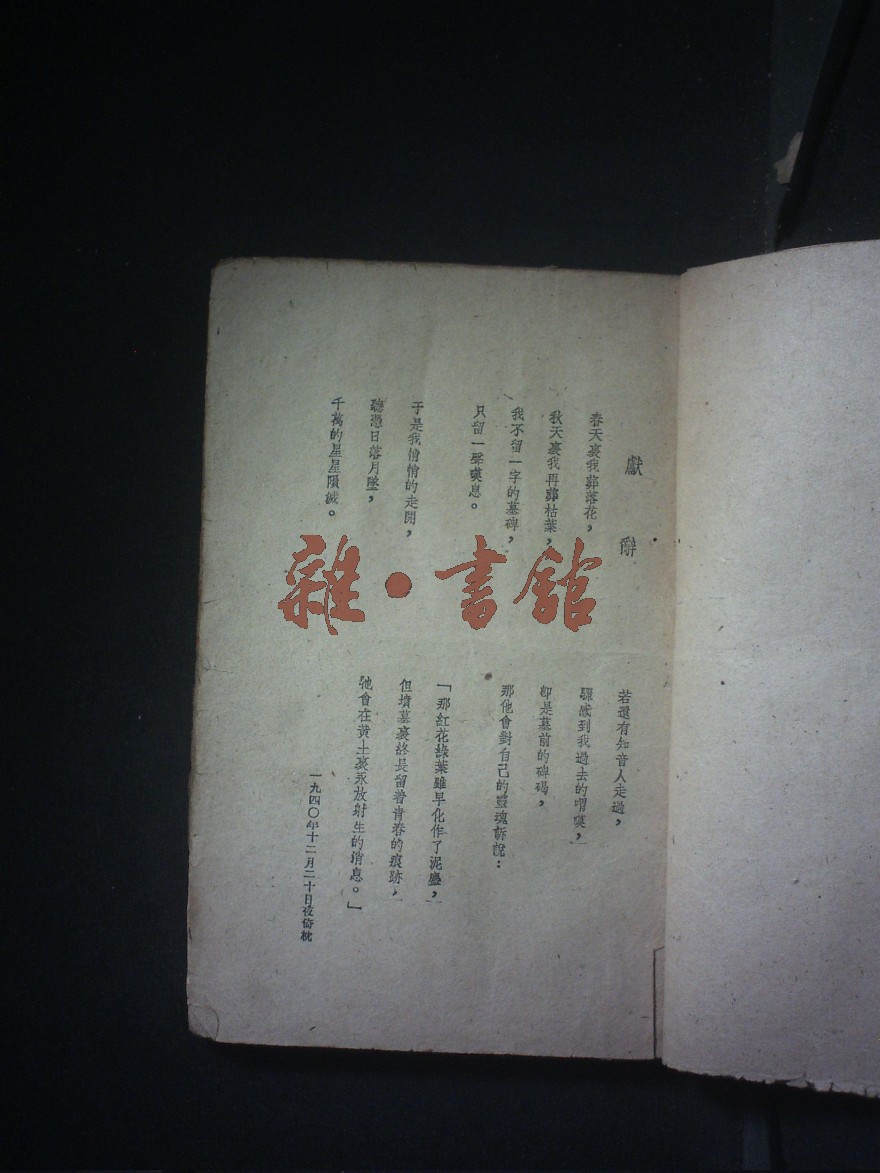 獻辭
春天裏我葬落花，
秋天裏我再葬枯葉，
我不留一字的墓碑，
只留一聲嘆息。
于是我悄悄的走開，
聽憑日落月墜，
千萬的星星隕滅。
若還有知音人走過，
驟感到我過去的喟嘆，
即是墓前的碑碣，
那他會對自己的靈魂訴說：
「那紅花綠葉雖早化作了泥塵，
但墳墓裏終長留着青春的痕跡，
他會在黃土裏永放射生的消息。」
一九四〇年十二月二十日夜倚枕
雜·書館